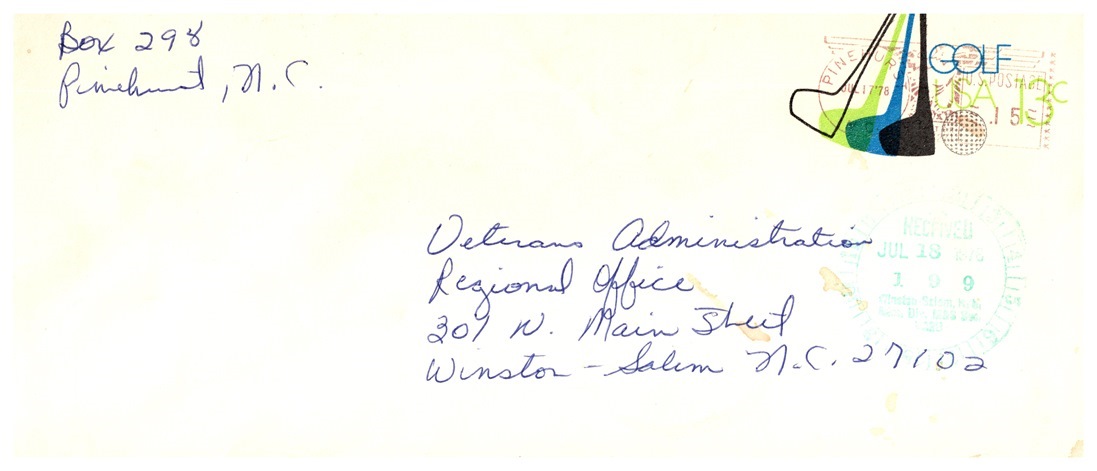 Box 298
Pinehurst, N.C.
GOLF
USA 13c
PINEHURST
JUL 17 '78
N.C.
U.S. POSTAGE
.15
Veterans Administration
Regional Office
301 N. Main Street
Winston-Salem N.C. 27102
RECEIVED
JUL 18
1 9 9
Winston Salem, N.C.